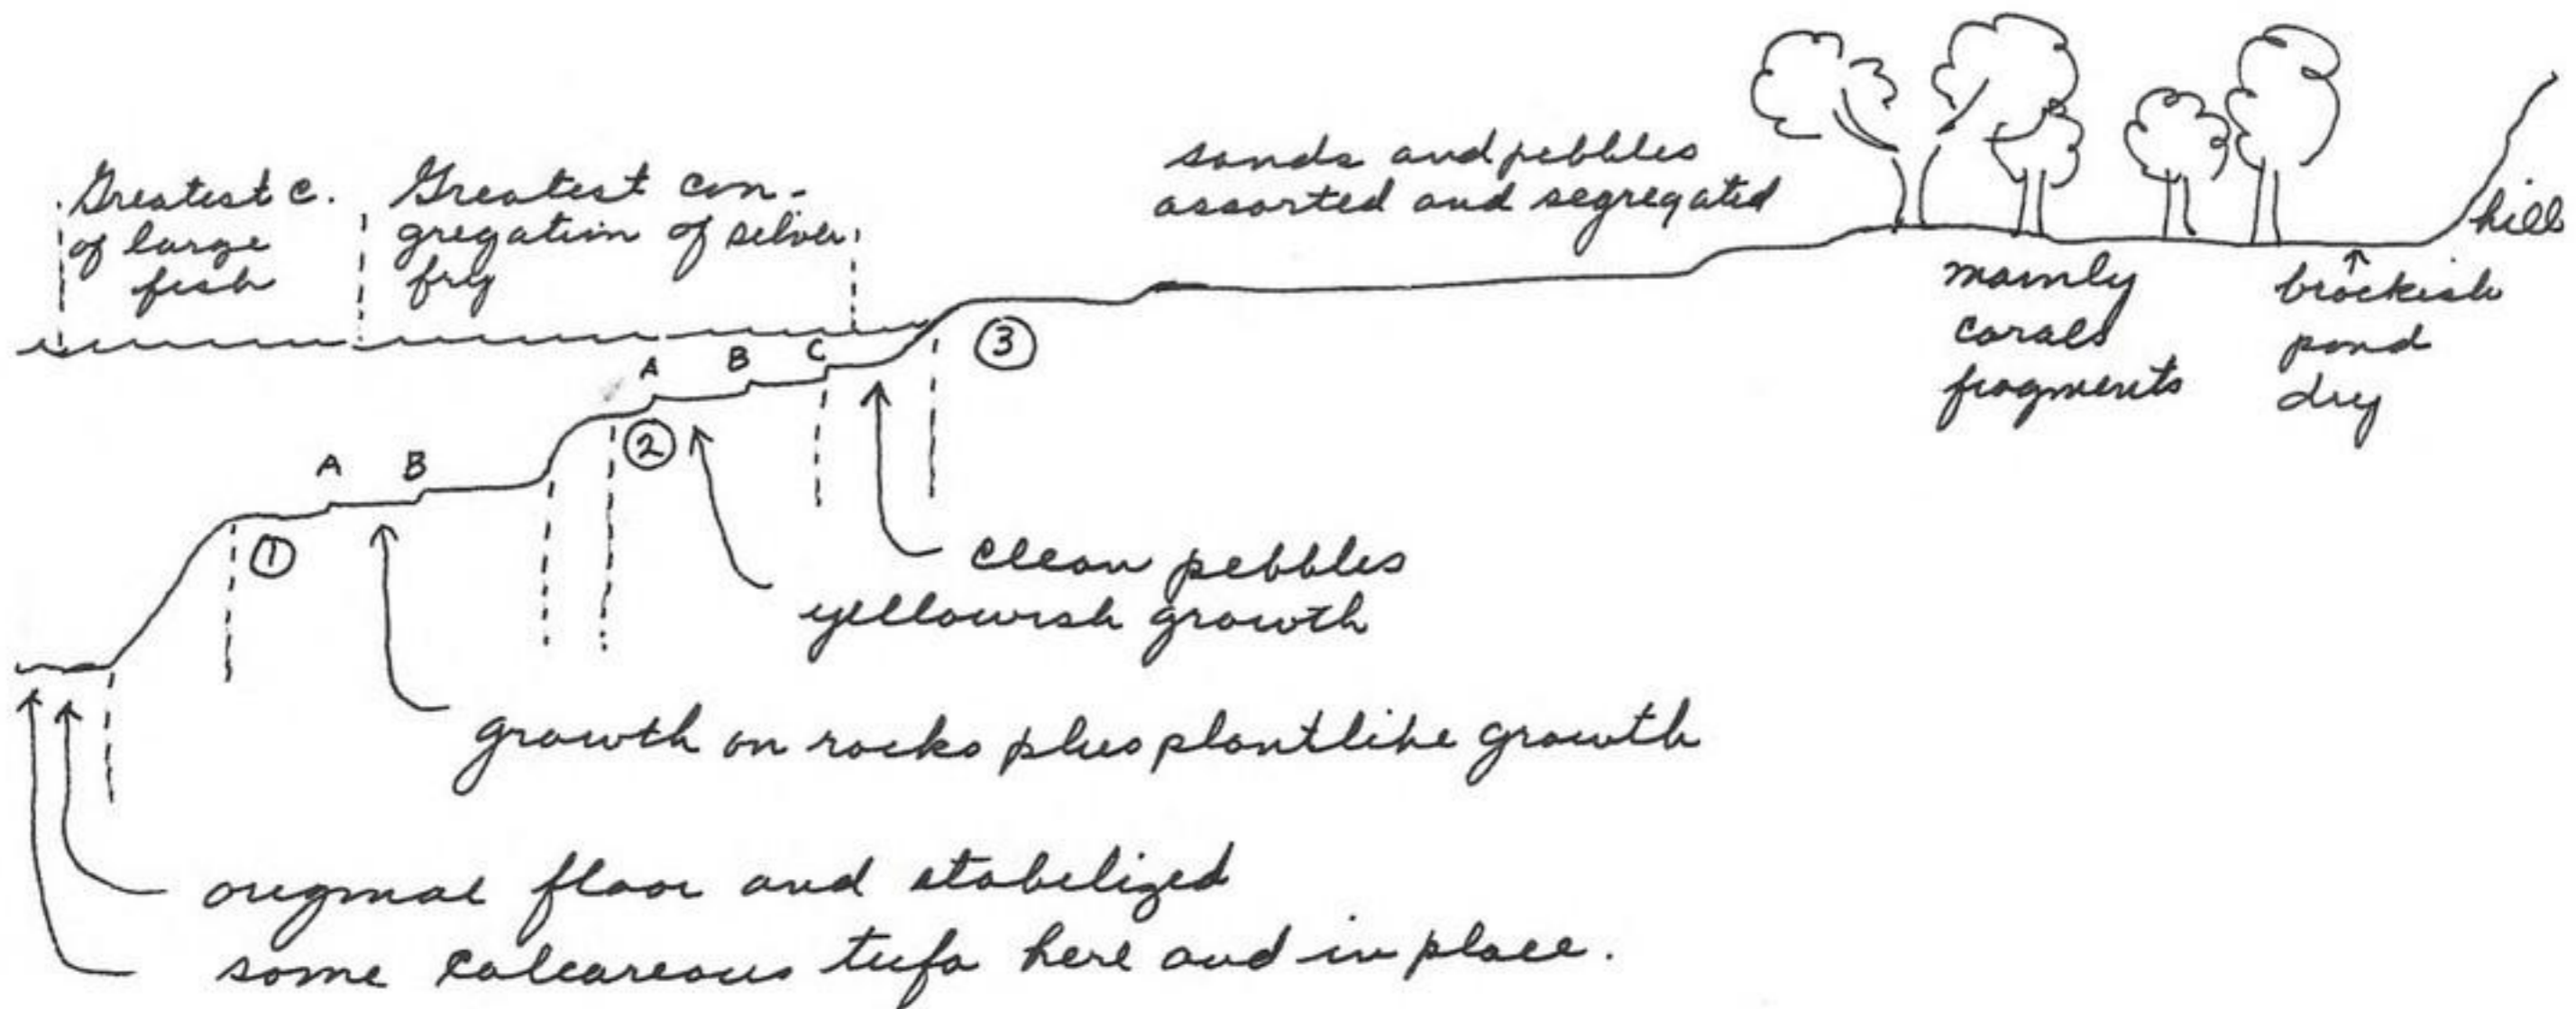 Greatest c.
of large
fish
Greatest con-
gregation of silver
fry
sands and pebbles
assorted and segregated
hill
mainly
corals
fragments
brackish
pond
dry
A
B
C
3
2
A
B
1
clean pebbles
yellowish growth
growth on rocks plus plantlike growth
original floor and stabelized
some calcareous tufa here and in place.